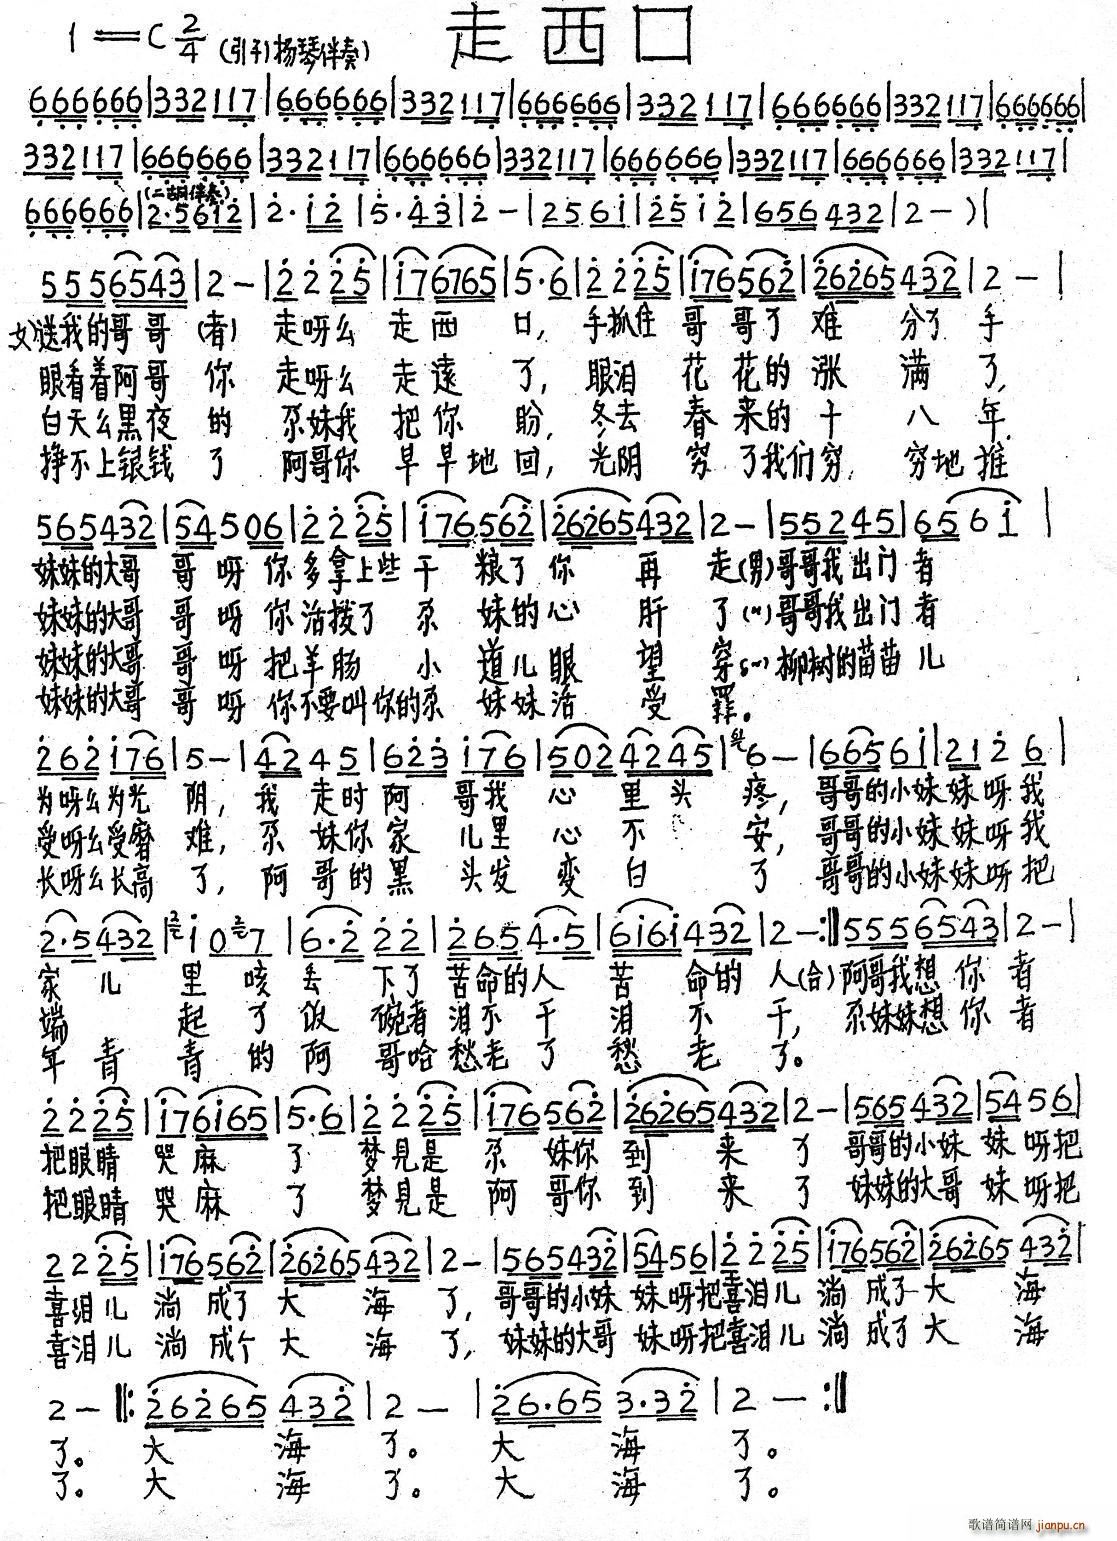 走西口
1=C 2/4 (引子)杨琴伴奏)
666666|332117|666666|332117|666666|332117|666666|332117|666666|
332117|666666|332117|666666|332117|666666|332117|666666|332117|
(二胡伴奏)
666666|2·5612|2·12|5·43|2-|2561|2512|656432|2-)|
5556543|2-|2225|176765|5·6|2225|176562|26265432|2-|
女)送我的哥哥(者)走呀么走西口,手抓住哥哥了难分了手
眼看着阿哥你走呀么走遠了,眼泪花花的涨满了,
白天么黑夜的尕妹我把你盼,冬去春来的十八年,
挣不上银钱了阿哥你早早地回,光阴穷了我们穷,穷地推
565432|54506|2225|176562|26265432|2-|552245|6561|
妹妹的大哥哥呀你多拿上些干粮了你再走(男)哥哥我出门者
妹妹的大哥哥呀你活拨了尕妹的心肝了(〃)哥哥我出门者
妹妹的大哥哥呀把羊肠小道儿眼望穿(〃)柳树的苗苗儿
妹妹的大哥哥呀你不要叫你的尕妹妹活受罪。
262176|5-|4245|623176|5024245|6-|66561|2126|
为呀么为光阴,我走时阿哥我心里头疼,哥哥的小妹妹呀我
受呀么受磨难,尕妹你家儿里心不安,哥哥的小妹妹呀我
长呀么长高了,阿哥的黑头发变白了哥哥的小妹妹呀把
2·5432|107|6·222|2654·5|6161432|2-:‖5556543|2-|
家儿里咳丢下了苦命的人苦命的人(合)阿哥我想你者
端起了饭碗者泪不干泪不干,尕妹妹想你者
年青青的阿哥哈愁老了愁老了。
2225|176165|5·6|2225|176562|26265432|2-|565432|5456|
把眼睛哭麻了梦見是尕妹你到来了哥哥的小妹妹呀把
把眼睛哭麻了梦見是阿哥你到来了妹妹的大哥妹呀把
2225|176562|26265432|2-|565432|5456|2225|176562|26265432|
喜泪儿淌成了大海了,哥哥的小妹妹呀把喜泪儿淌成了大海
喜泪儿淌成个大海了,妹妹的大哥妹呀把喜泪儿淌成了大海
2-‖:26265432|2-|26·653·32|2-:‖
了。大海了。大海了。
了。大海了。大海了。
歌谱简谱网 jianpu.cn